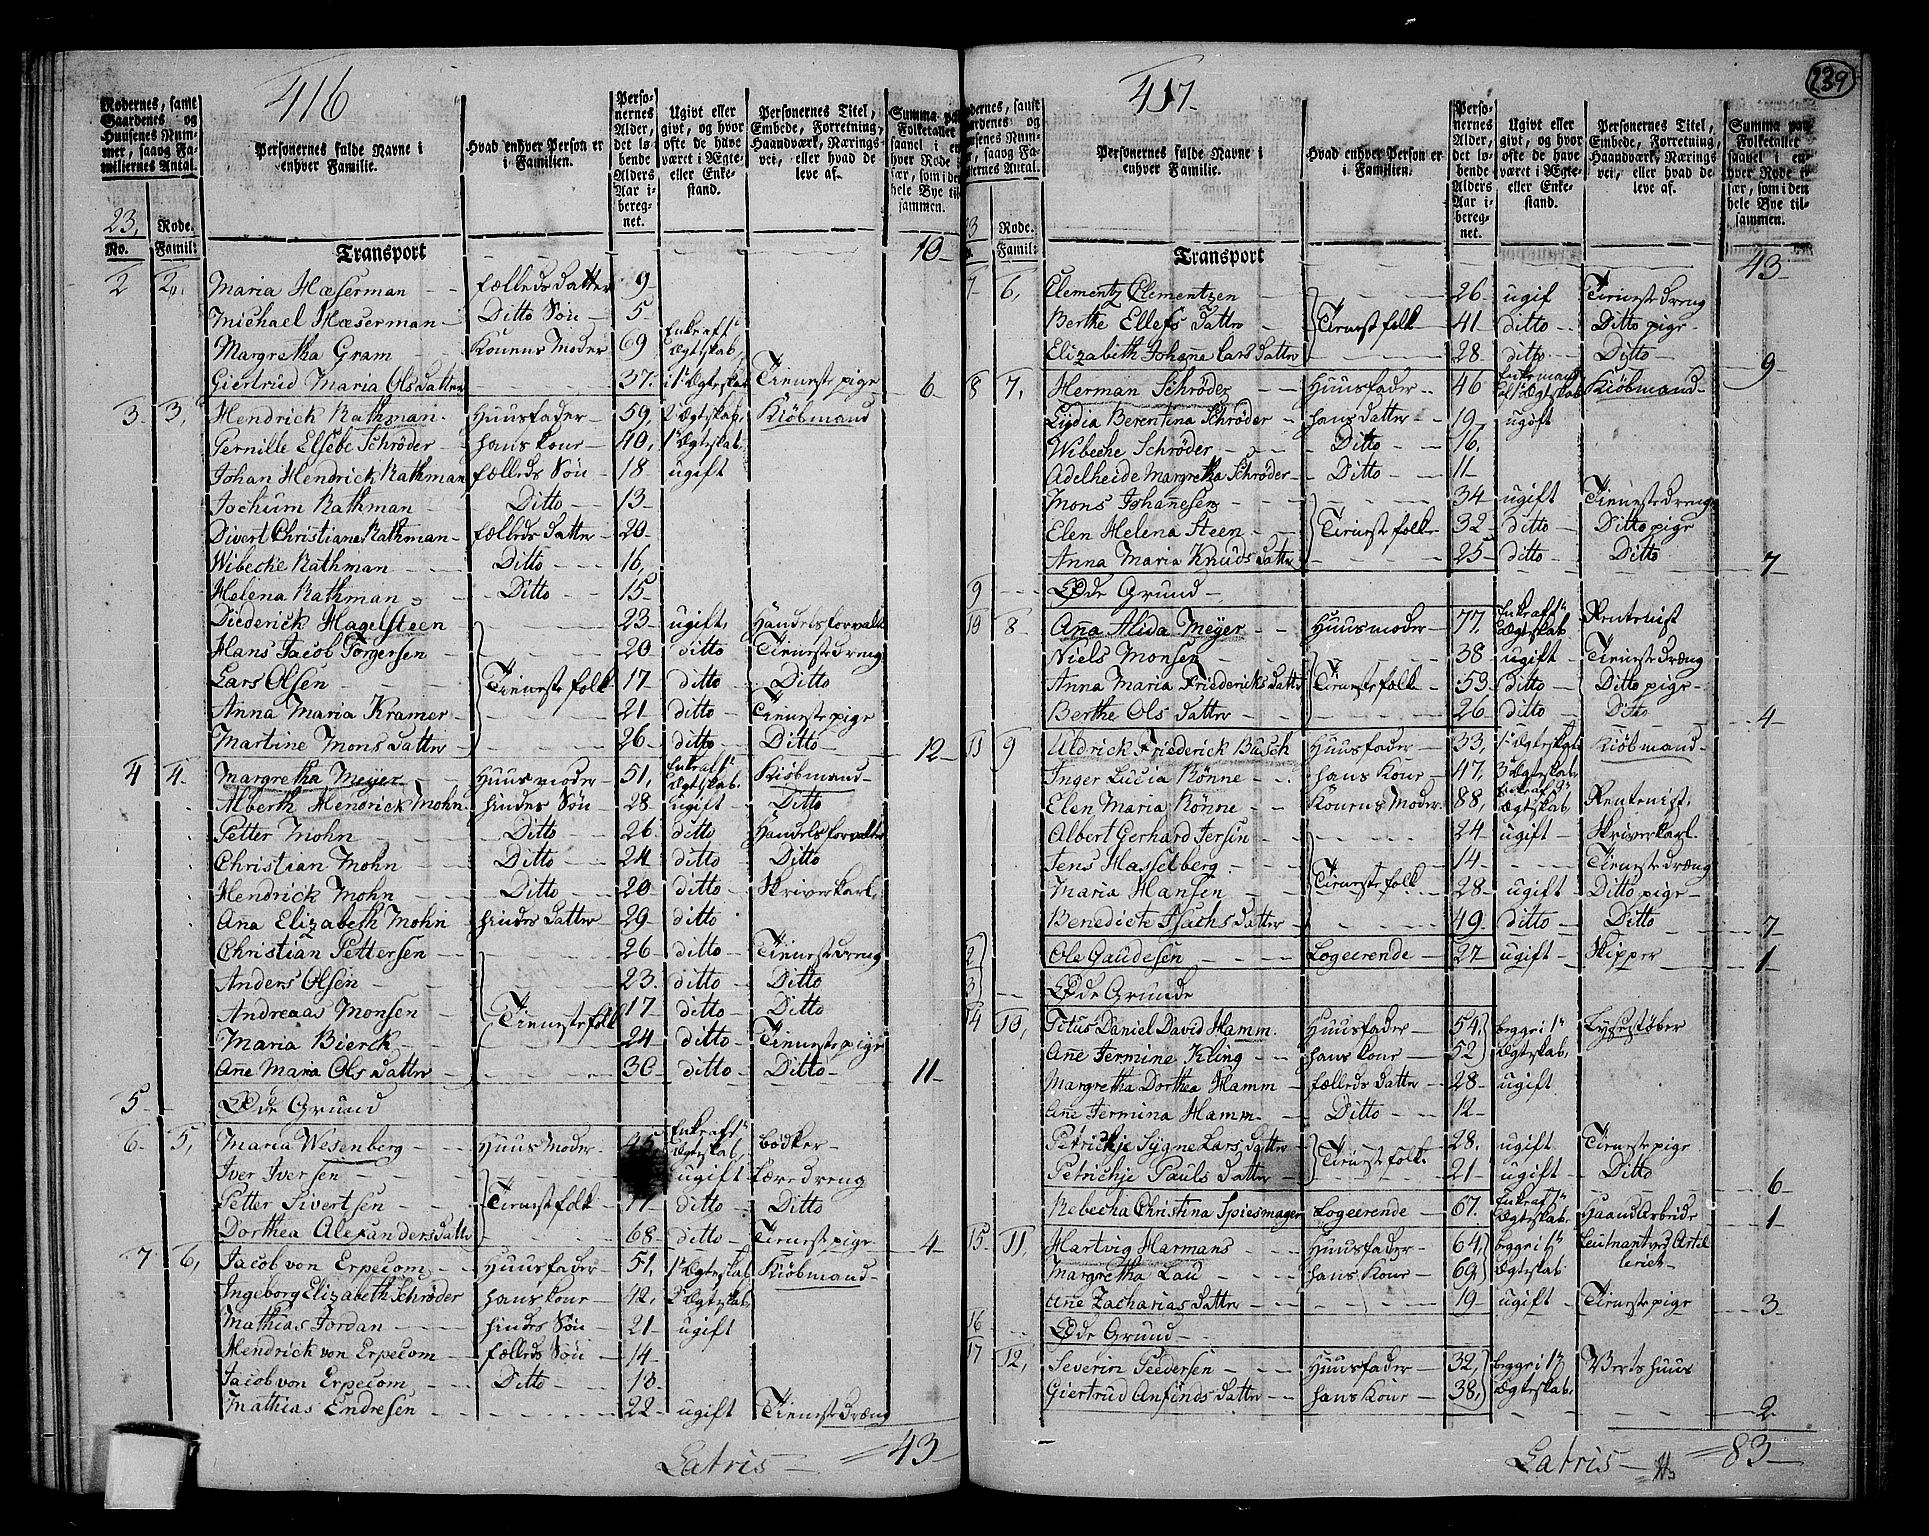 416
Rodernes, samt Gaardenes og Huusenes Nummer, saavg Familiernes Antal.
Personernes fulde Navne i enhver Familie.
Hvad enhver Person er i Familien.
Personernes Alder, det løbende Alders Aar iberegnet.
Ugivt eller givt, og hvor ofte de have været i Ægte- eller Enkestand.
Personernes Titel, Embede, Forretning, Haandværk, Næringsvei, eller hvad de leve af.
Summa paa Folketallet saavel i enhver Rode især, som i den hele Bye tilsammen.
23, Rode.
No. Famil:
Transport 10
2 2. Maria Hæserman fælleds datter 9
Michael Hæserman Ditto Søn 5
Margretha Gram Konens Moder 69 Enke aft 1 Ægteskab,
Giertrud Maria Olsdatter 37. i 1 Ægteskab Tieneste pige 6
3 3, Hendrick Rathman Huusfader 59, 2 Ægteskab, Kiøbmand
Pernille Elsebe Schrøder hans kone 40, 1 Ægteskab
Johan Hendrick Rathman fælleds Søn 18 ugift
Jochum Rathman Ditto 13
Divert Christiana Rathman fælleds datter 20
Wibecke Rathman Ditto 16,
Helena Rathman Ditto 15
Diederick Hagelsteen 23 ugift, Handelsforvalt
Hans Jacob Torgersen 20 ditto Tienestedreng
Lars Olsen Tienestefolk 17 ditto Ditto
Anna Maria Kramer 21 ditto Tienestepige
Martine Mons datter 26 ditto Ditto 12
4 4. Margretha Meyer Huusmoder 51, Enke aft 1 Ægteskab. Kiøbmand
Alberth Hendrick Mohn hindes Søn 28 ugift Ditto
Petter Mohn Ditto 26 ditto Handelsforvalter
Christian Mohn Ditto 24 ditto Ditto
Hendrick Mohn Ditto 20 ditto Skriverkarl,
Ana Elizabeth Mohn hindes datter 29 ditto
Christian Pettersen 26 ditto Tienestedreng
Anders Olsen 23 ditto Ditto
Andreaas Monsen Tienestefolk 17 ditto Ditto
Maria Bierck 24 ditto Tienestepige
Ane Maria Ols datter 30 ditto Ditto 11
5 Øde Grund
6 5, Maria Wesenberg Huus Moder 45 Enke aft 1 Ægteskab, bødker
Iver Iversen ugift læredreng
Petter Sivertsen Tienestfolk 17 ditto Ditto
Dorthea Alexandersdatter 68 ditto Tienestepige 4
7 6, Jacob von Erpecom Huusfader 51, 1 Ægteskab Kiøbmand
Ingeborg Elizabeth Schrøder hans kone 42, 2 Ægteskab,
Mathias Jordan hindes Søn 21 ugift
Hendrick von Erpecom fælleds Søn 14
Jacob von Erpecom Ditto 10
Mathias Endresen 22 ugift Tienestedræng
Latris 43
417
239
Rodernes, samt Gaardenes og Huusenes Nummer, saavg Familiernes Antal.
Personernes fulde Navne i enhver Familie.
Hvad enhver Person er i Familien.
Personernes Alder, det løbende Alders Aar iberegnet.
Ugivt eller givt, og hvor ofte de have været i Ægte- eller Enkestand.
Personernes Titel, Embede, Forretning, Haandværk, Næringsvei, eller hvad de leve af.
Summa paa Folketallet saavel i enhver Rode især, som i den hele Bye tilsammen.
3 Rode.
Famil:
Transport 43
7 6, Clementz Clementzen 26 ugif Tienestedreng
Berthe Ellefs datter Tienestfolk 41 ditto Ditto pige
Elizabeth Johanne Lars datter 28 ditto Ditto 9
8 7, Herman Schrøder Huusfader 46 Enkemand Ægteskab Kiøbmand
Lydia Berentina Schrøder hans datter 19 ugift
Wibecke Schrøder Ditto 16,
Adelheide Margretha Schrøder Ditto 11
Mons Johanesen 34 ugift Tienestedreng
Elen Helena Steen Tienestfolk 32 ditto Ditto pige
Anna Maria Knuds datter 25 ditto Ditto 7
9 Øde Grund
10 8 Ana Alida Meyer Huusmoder 77 Enke aft 1 Ægteskab Rentenist
Niels Monsen 38 ugift Tienestedræng
Anna Maria Friedericksdatter Tienestefolk 53 ditto Ditto pige
Berthe Ols datter 26 ditto Ditto 4
11 9 Uldrick Friederick Busch Huusfader 33, 1 Ægteskab Kiøbmand
Inger Lucia Rønne hans Kone 47, 3 Ægteskab
Elen Maria Rønne Konens Moder 88, Enke Ægteskab, Rentenist,
Albert Gerhard Jersin 24 ugift Skriverkarl
Jens Hasselberg 14 Tienestedræng
Maria Hansen Tienestefolk 28 ugift Ditto pige
Benedicte Isachsdatter 49 ditto Ditto 7
2 Ole Gaudesen Logeerende 27 ugift Skipper 1
3 Øde Grunde
14 10, Titus Daniel David Hamm Huusfader 54, begge i 1 Lysestøber
Ane Jermine Kling hans kone 52 Ægteskab,
Margretha Dorthea Hamm fælleds datter 28 ugift
Ane Jermina Hamm Ditto 12
Petrickje Sygne Lars datter 28. ugift Tienestepige
Petrickje Pauls datter Tienestfolk 21 ugift Ditto 6
Rebecha Christina Spiesmager Logeerende 67. Enke aft 1 Ægteskab, Haandarbeide 1
15 11, Hartvig Harmans Huusfader 64, begge i 1 Leutnant ved Artilleriet
Margretha Lau hans Kone 69 Ægteskab
Ane Zacharias datter 19 ugift Tienestepige 3
16 Øde Grund
17 12, Severin Seversen Huusfader 32, begge i 1 Vertshuus
Giertrud Anfinds datter hans Kone 38, Ægteskab. 2
Latris 83